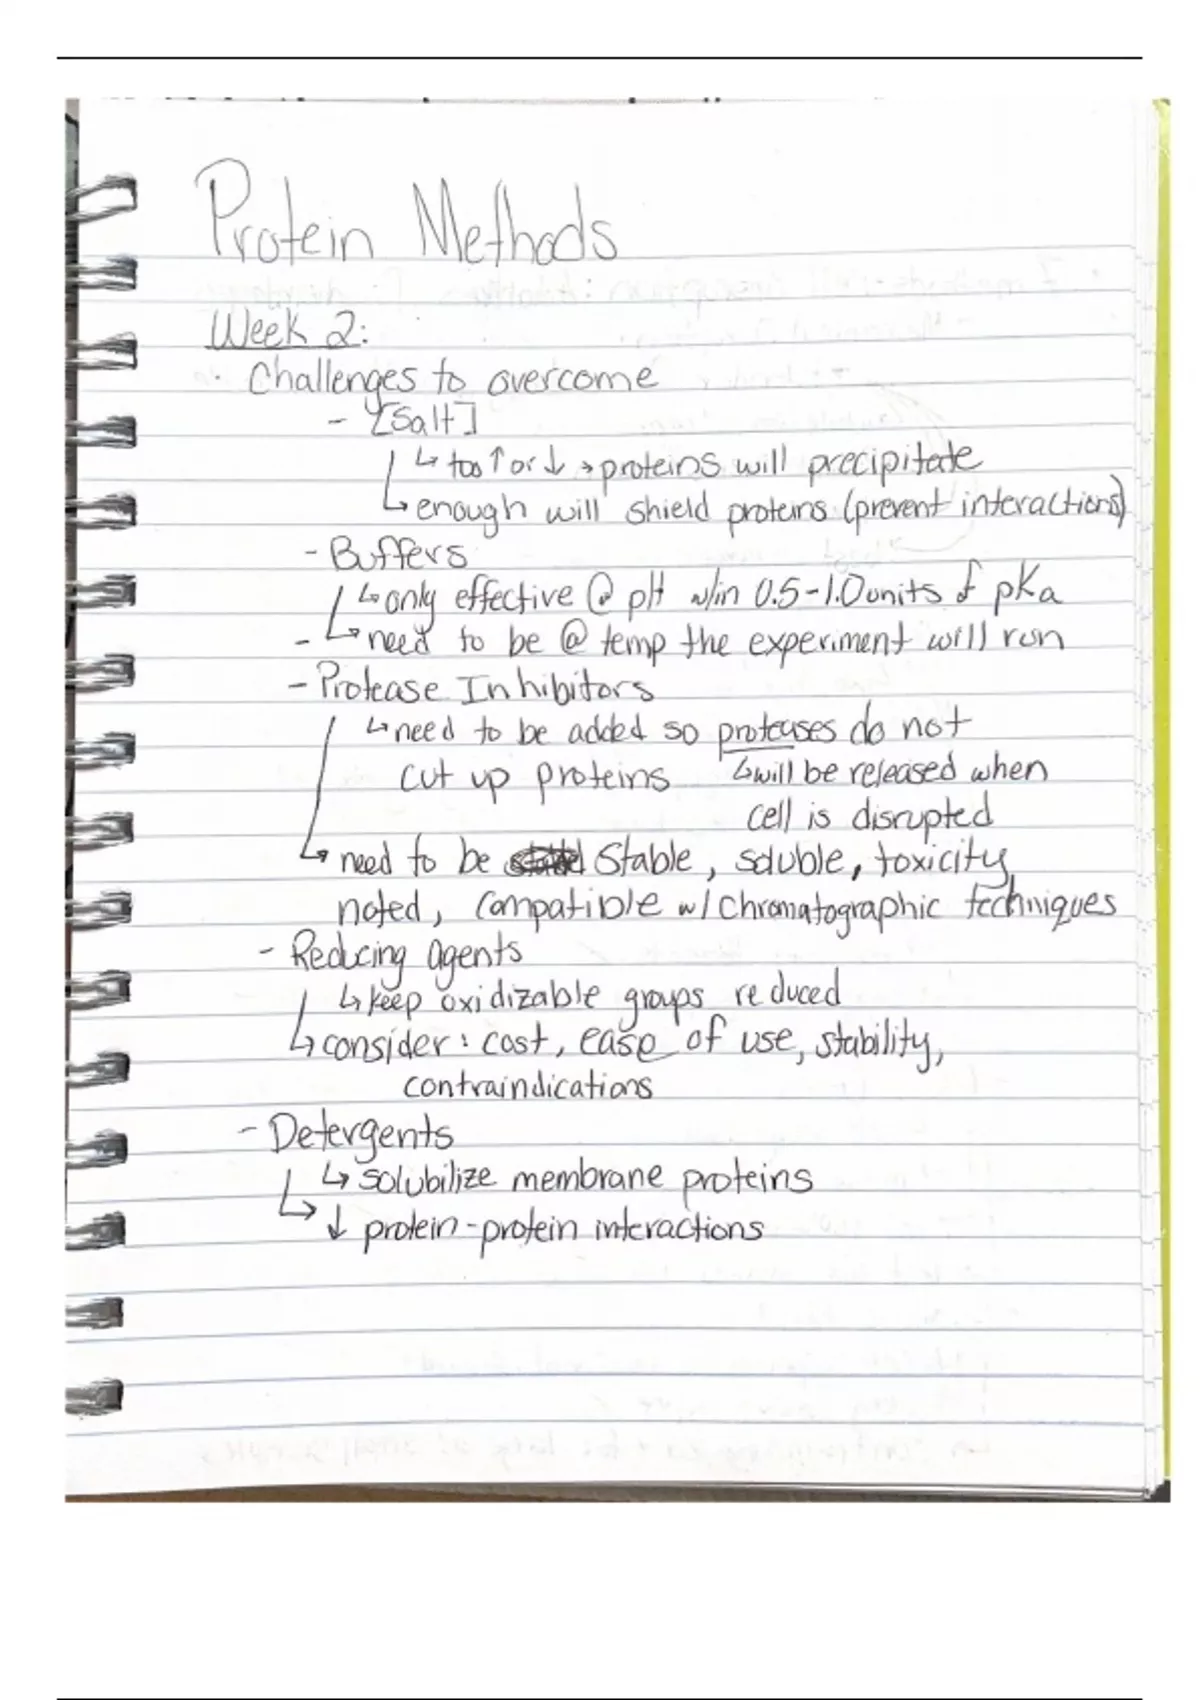 Protein Methods
Week 2:
· Challenges to overcome
- [Salt]
↳ too ↑ or ↓ → proteins will precipitate
↳ enough will shield proteins (prevent interactions)
- Buffers
↳ only effective @ pH w/in 0.5-1.0 units of pKa
- ↳ need to be @ temp the experiment will run
- Protease Inhibitors
↳ need to be added so proteases do not
cut up proteins ↳ will be released when
cell is disrupted
↳ need to be Stable, soluble, toxicity
noted, compatible w/ chromatographic techniques
- Reducing agents
↳ keep oxidizable groups reduced
↳ consider: cost, ease of use, stability,
contraindications
- Detergents
↳ solubilize membrane proteins
↳ ↓ protein-protein interactions